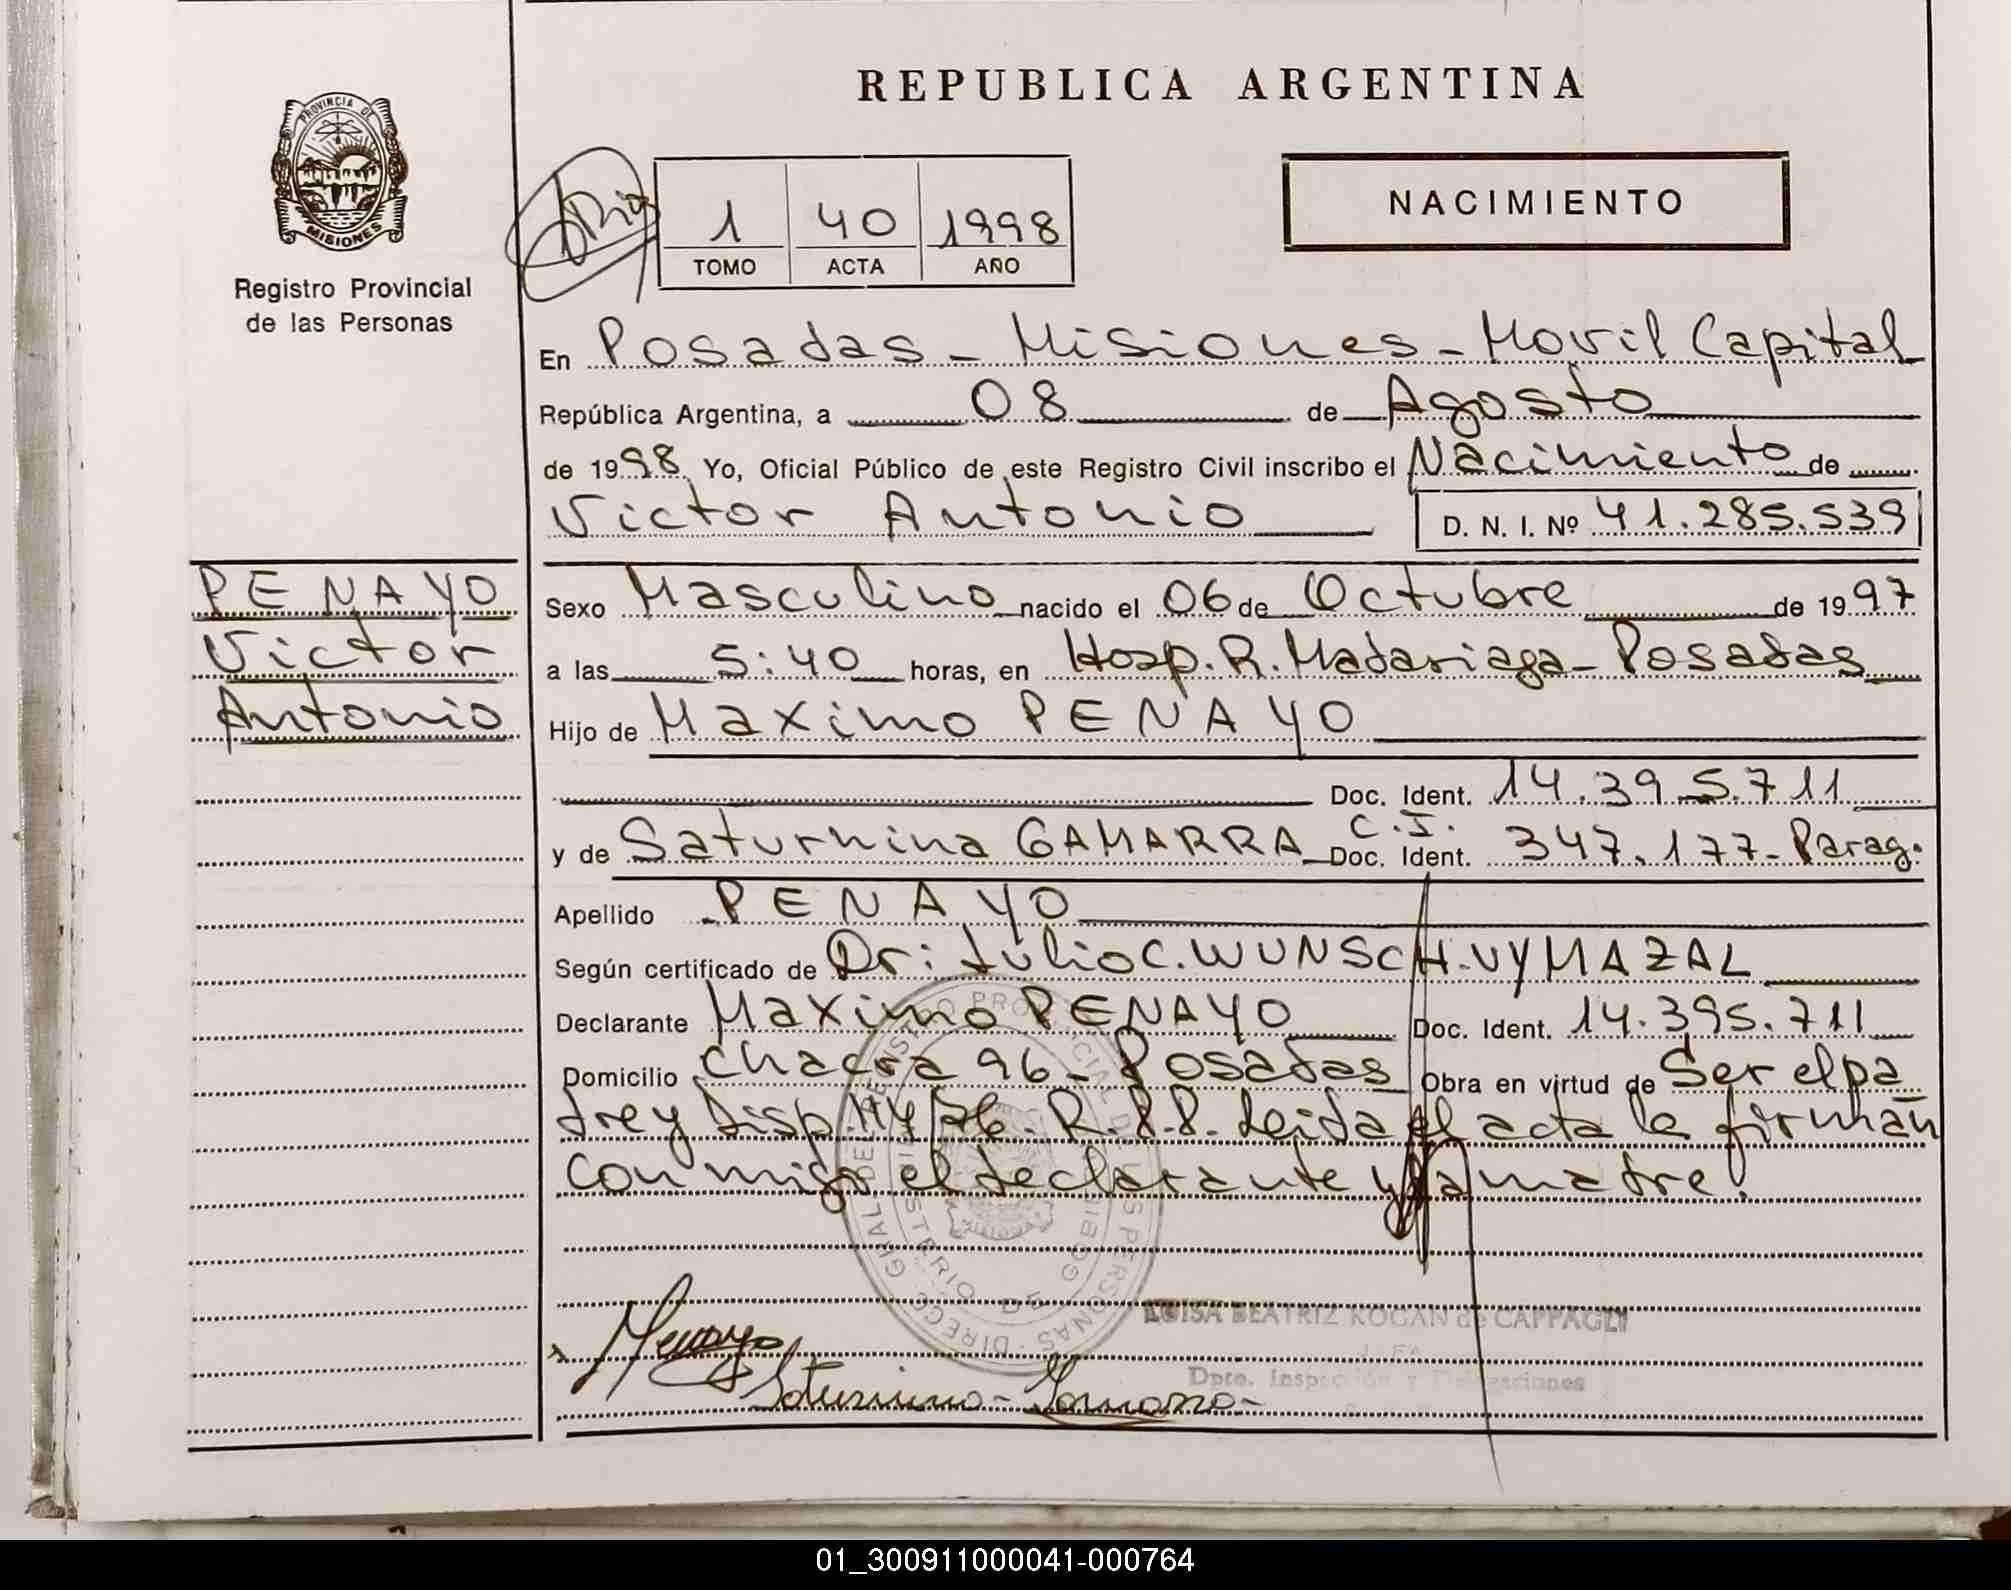 REPUBLICA ARGENTINA
PROVINCIA DE
MISIONES
Registro Provincial
de las Personas
1 40 1998
TOMO ACTA AÑO
NACIMIENTO
En Posadas - Misiones - Movil Capital
República Argentina, a 08 de Agosto
de 1998 Yo, Oficial Público de este Registro Civil inscribo el Nacimiento de
Victor Antonio D. N. I. Nº 41.285.539
PENAYO
Victor
Antonio
Sexo Masculino nacido el 06 de Octubre de 1997
a las 5:40 horas, en Hosp. R. Madariaga - Posadas
Hijo de Maximo PENAYO
Doc. Ident. 14.395.711
y de Saturnina GAMARRA C.I. Doc. Ident. 347.177 - Parag.
Apellido PENAYO
Según certificado de Dr: Julio C. WUNSCH.VYMAZAL
Declarante Maximo PENAYO Doc. Ident. 14.395.711
Domicilio Chacra 96 - Posadas Obra en virtud de Ser el pa
dre y Disp. R.P.P. Leida el acta la firman
conmigo el declarante y la madre.
DIRECC. GRAL DEL REGISTRO PROVINCIAL DE LAS PERSONAS
MINISTERIO DE GOBIERNO
LUISA BEATRIZ KOGAN de CAPPAGLI
JEFA
Dpto. Inspección y Delegaciones
Penayo
Saturnina - Gamarra -
01_300911000041-000764